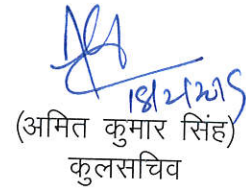 18/2/2015
(अमित कुमार सिंह)
कुलसचिव